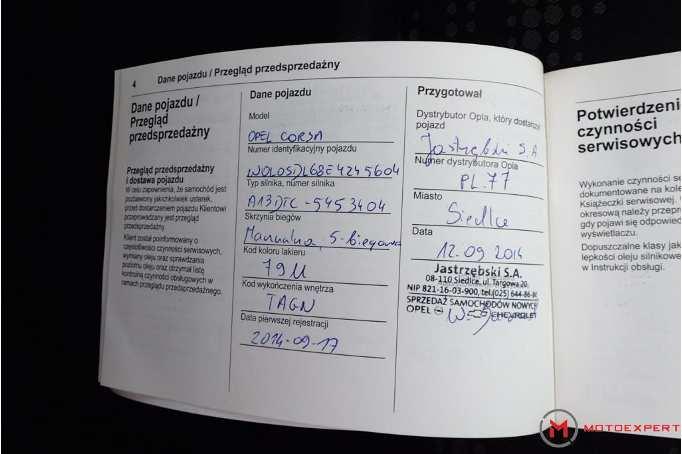 4 Dane pojazdu / Przegląd przedsprzedażny
Dane pojazdu /
Przegląd
przedsprzedażny
Przegląd przedsprzedażny
i dostawa pojazdu
W celu zapewnienia, że samochód jest
pozbawiony jakichkolwiek usterek,
przed dostarczeniem pojazdu Klientowi
przeprowadzany jest przegląd
przedsprzedażny.
Klient został poinformowany o
częstotliwości czynności serwisowych,
wymiany oleju oraz sprawdzania
poziomu oleju oraz otrzymał listę
kontrolną czynności obsługowych w
ramach przeglądu przedsprzedażnego.
Dane pojazdu
Model
OPEL CORSA
Numer identyfikacyjny pojazdu
W0L0SDL68E4245604
Typ silnika, numer silnika
A13DTC - 5453404
Skrzynia biegów
Manualna 5-biegowa
Kod koloru lakieru
79U
Kod wykończenia wnętrza
TAGN
Data pierwszej rejestracji
2014-09-17
Przygotował
Dystrybutor Opla, który dostarczył
pojazd
Jastrzębski S.A
Numer dystrybutora Opla
PL.77
Miasto
Siedlce
Data
12.09 2014
Jastrzębski S.A.
08-110 Siedlce, ul. Targowa 20
NIP 821-16-03-900, tel.(025) 644-86-
SPRZEDAŻ SAMOCHODÓW NOWYCH
OPEL CHEVROLET
Potwierdzeni
czynności
serwisowych
Wykonanie czynności se
dokumentowane na kole
Książeczki serwisowej.
okresową należy przepr
gdy pojawi się odpowied
wyświetlaczu.
Dopuszczalne klasy jak
lepkości oleju silnikowe
w Instrukcji obsługi.
MOTOEXPERT